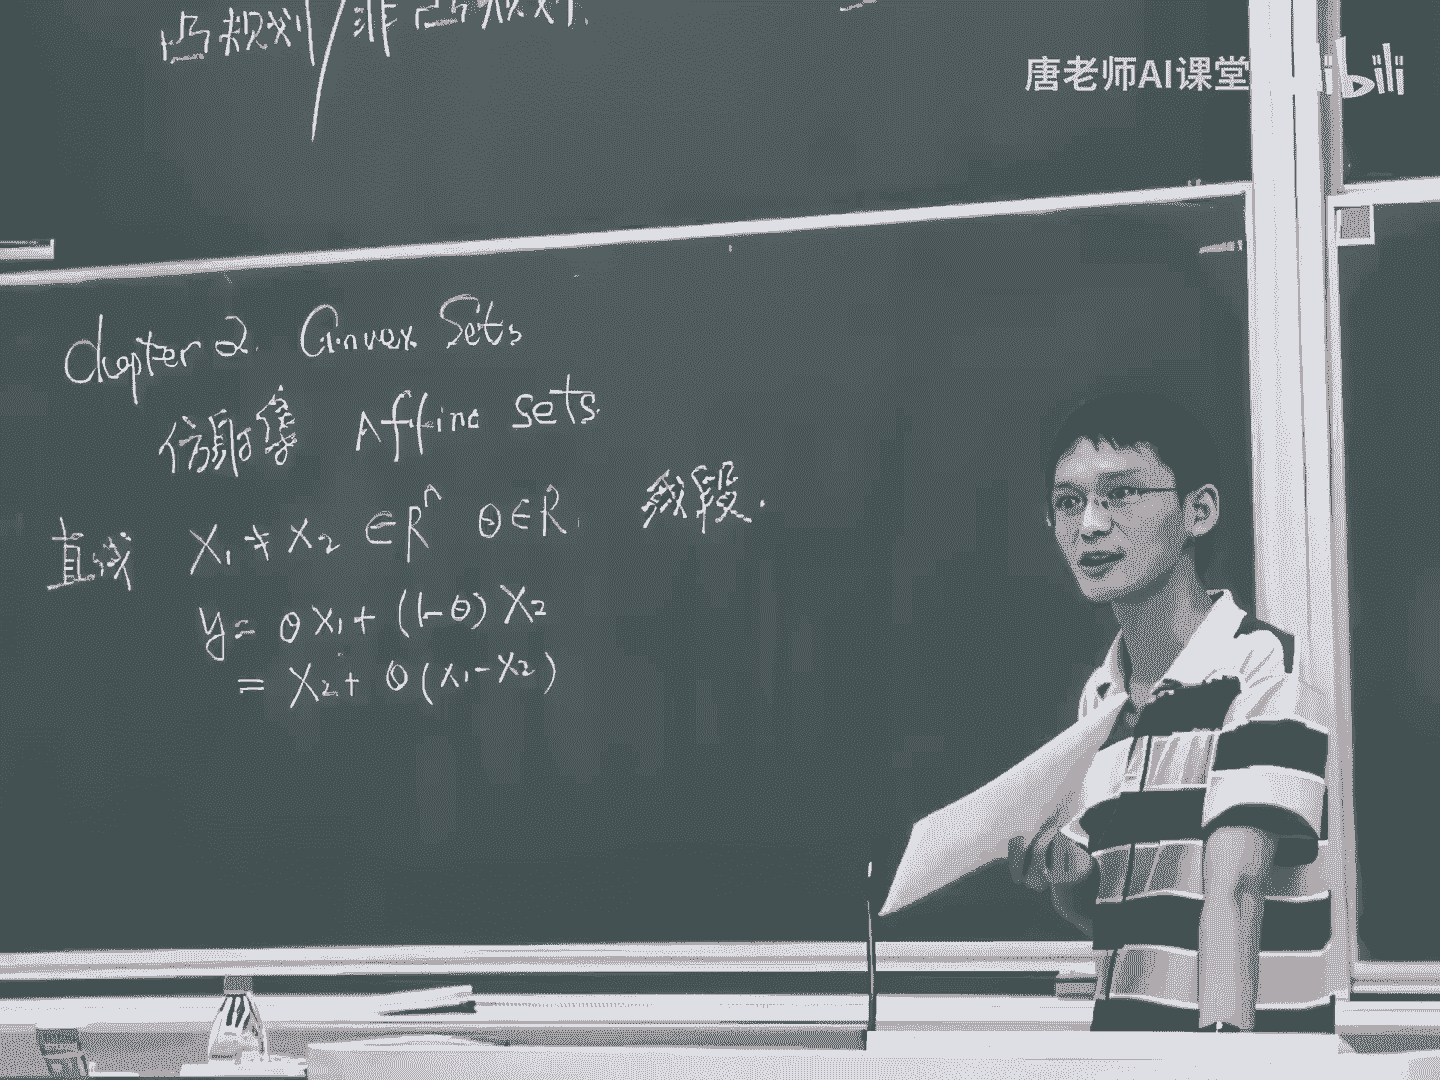 凸规划/非凸规划.
唐老师AI课堂 bilibili
Chapter 2. Convex Sets
仿射集 Affine sets.
直线 X₁ ≠ X₂ ∈ Rⁿ θ ∈ R. 线段.
y = θX₁ + (1-θ)X₂
= X₂ + θ(X₁-X₂)